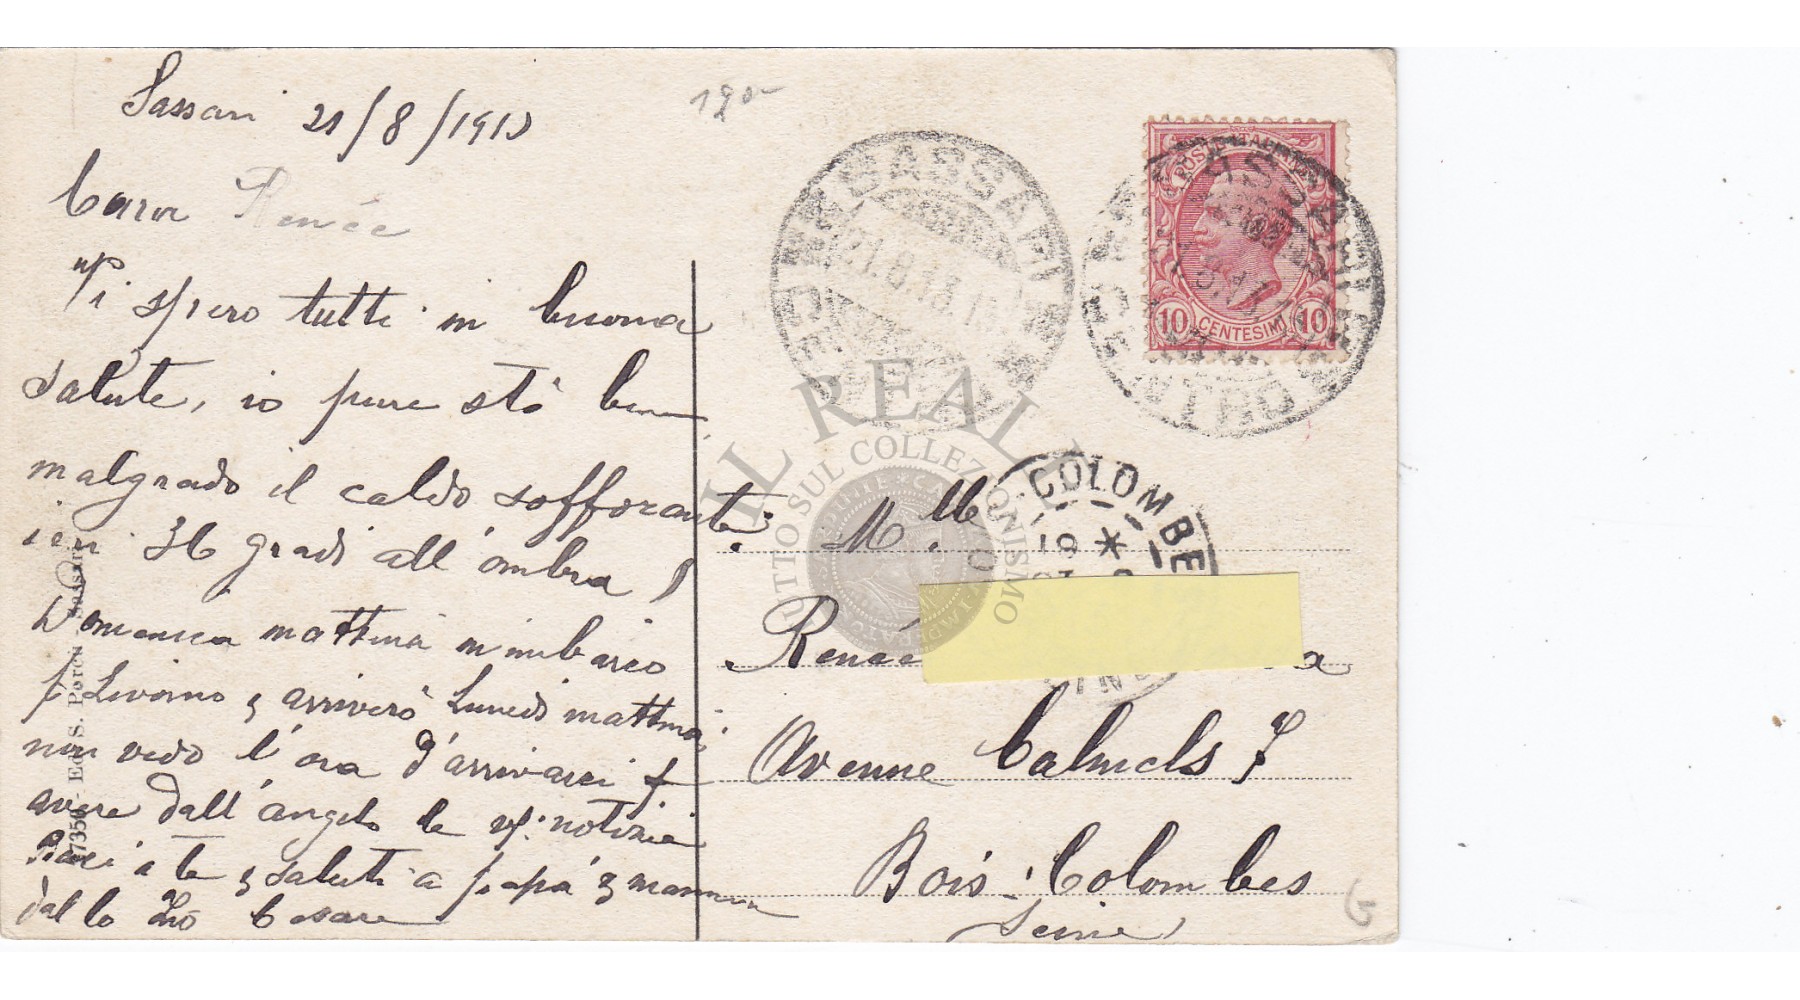 Sassari 21/8/1913
190-
Cara Renée
Vi spero tutti in buona
salute, io pure stò bene
malgrado il caldo sofforante.
ieri 36 gradi all'ombra!
Domenica mattina m'imbarco
p Livorno & arriverò Lunedì mattina,
non vedo l'ora d'arrivarci p
avere dall'angelo le vs. notizie
Baci a te & saluti a papá & mamma
dallo Zio Cesare
7356 - Ed. S. Porcu - Sassari
SASSARI
21.8.13
POSTE ITALIANE
10 CENTESIMI 10
SASSARI
CENTRO
IL REALE
TUTTO SUL COLLEZIONISMO
COLOMBES
M.lle
Renée
a
Avenue Calmels 7
Bois-Colombes
Seine